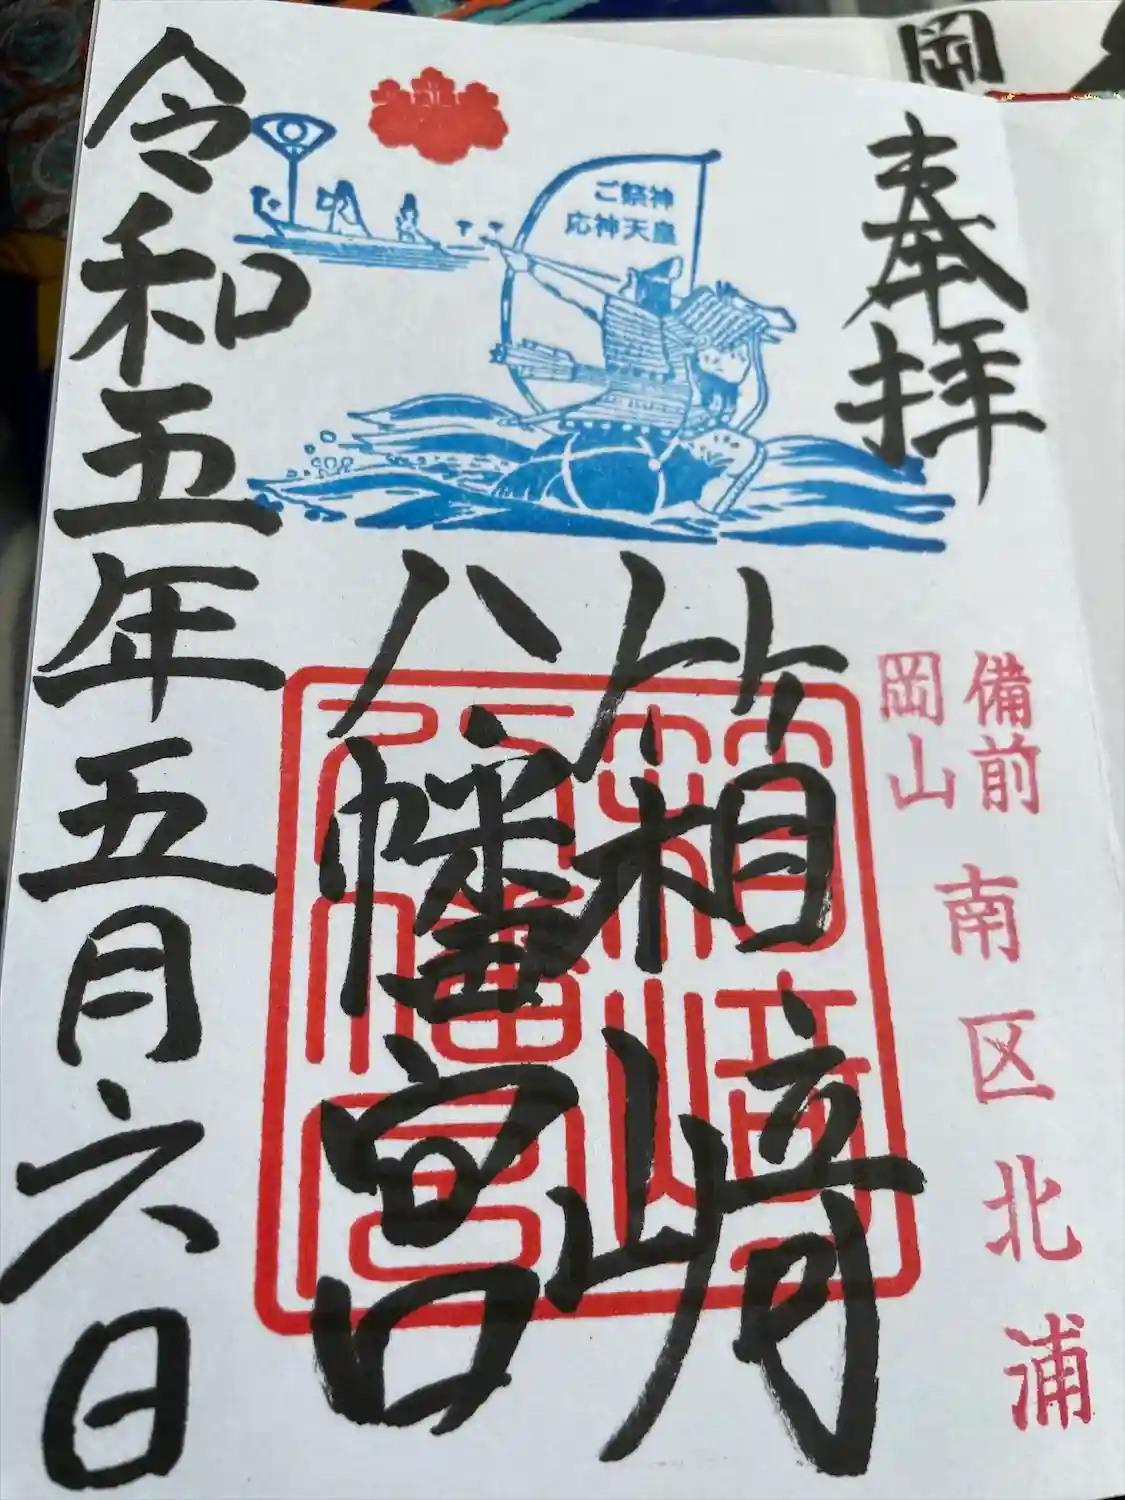 奉拝
備前
岡山
南区北浦
ご祭神
応神天皇
箱崎
八幡宮
令和五年五月六日
岡